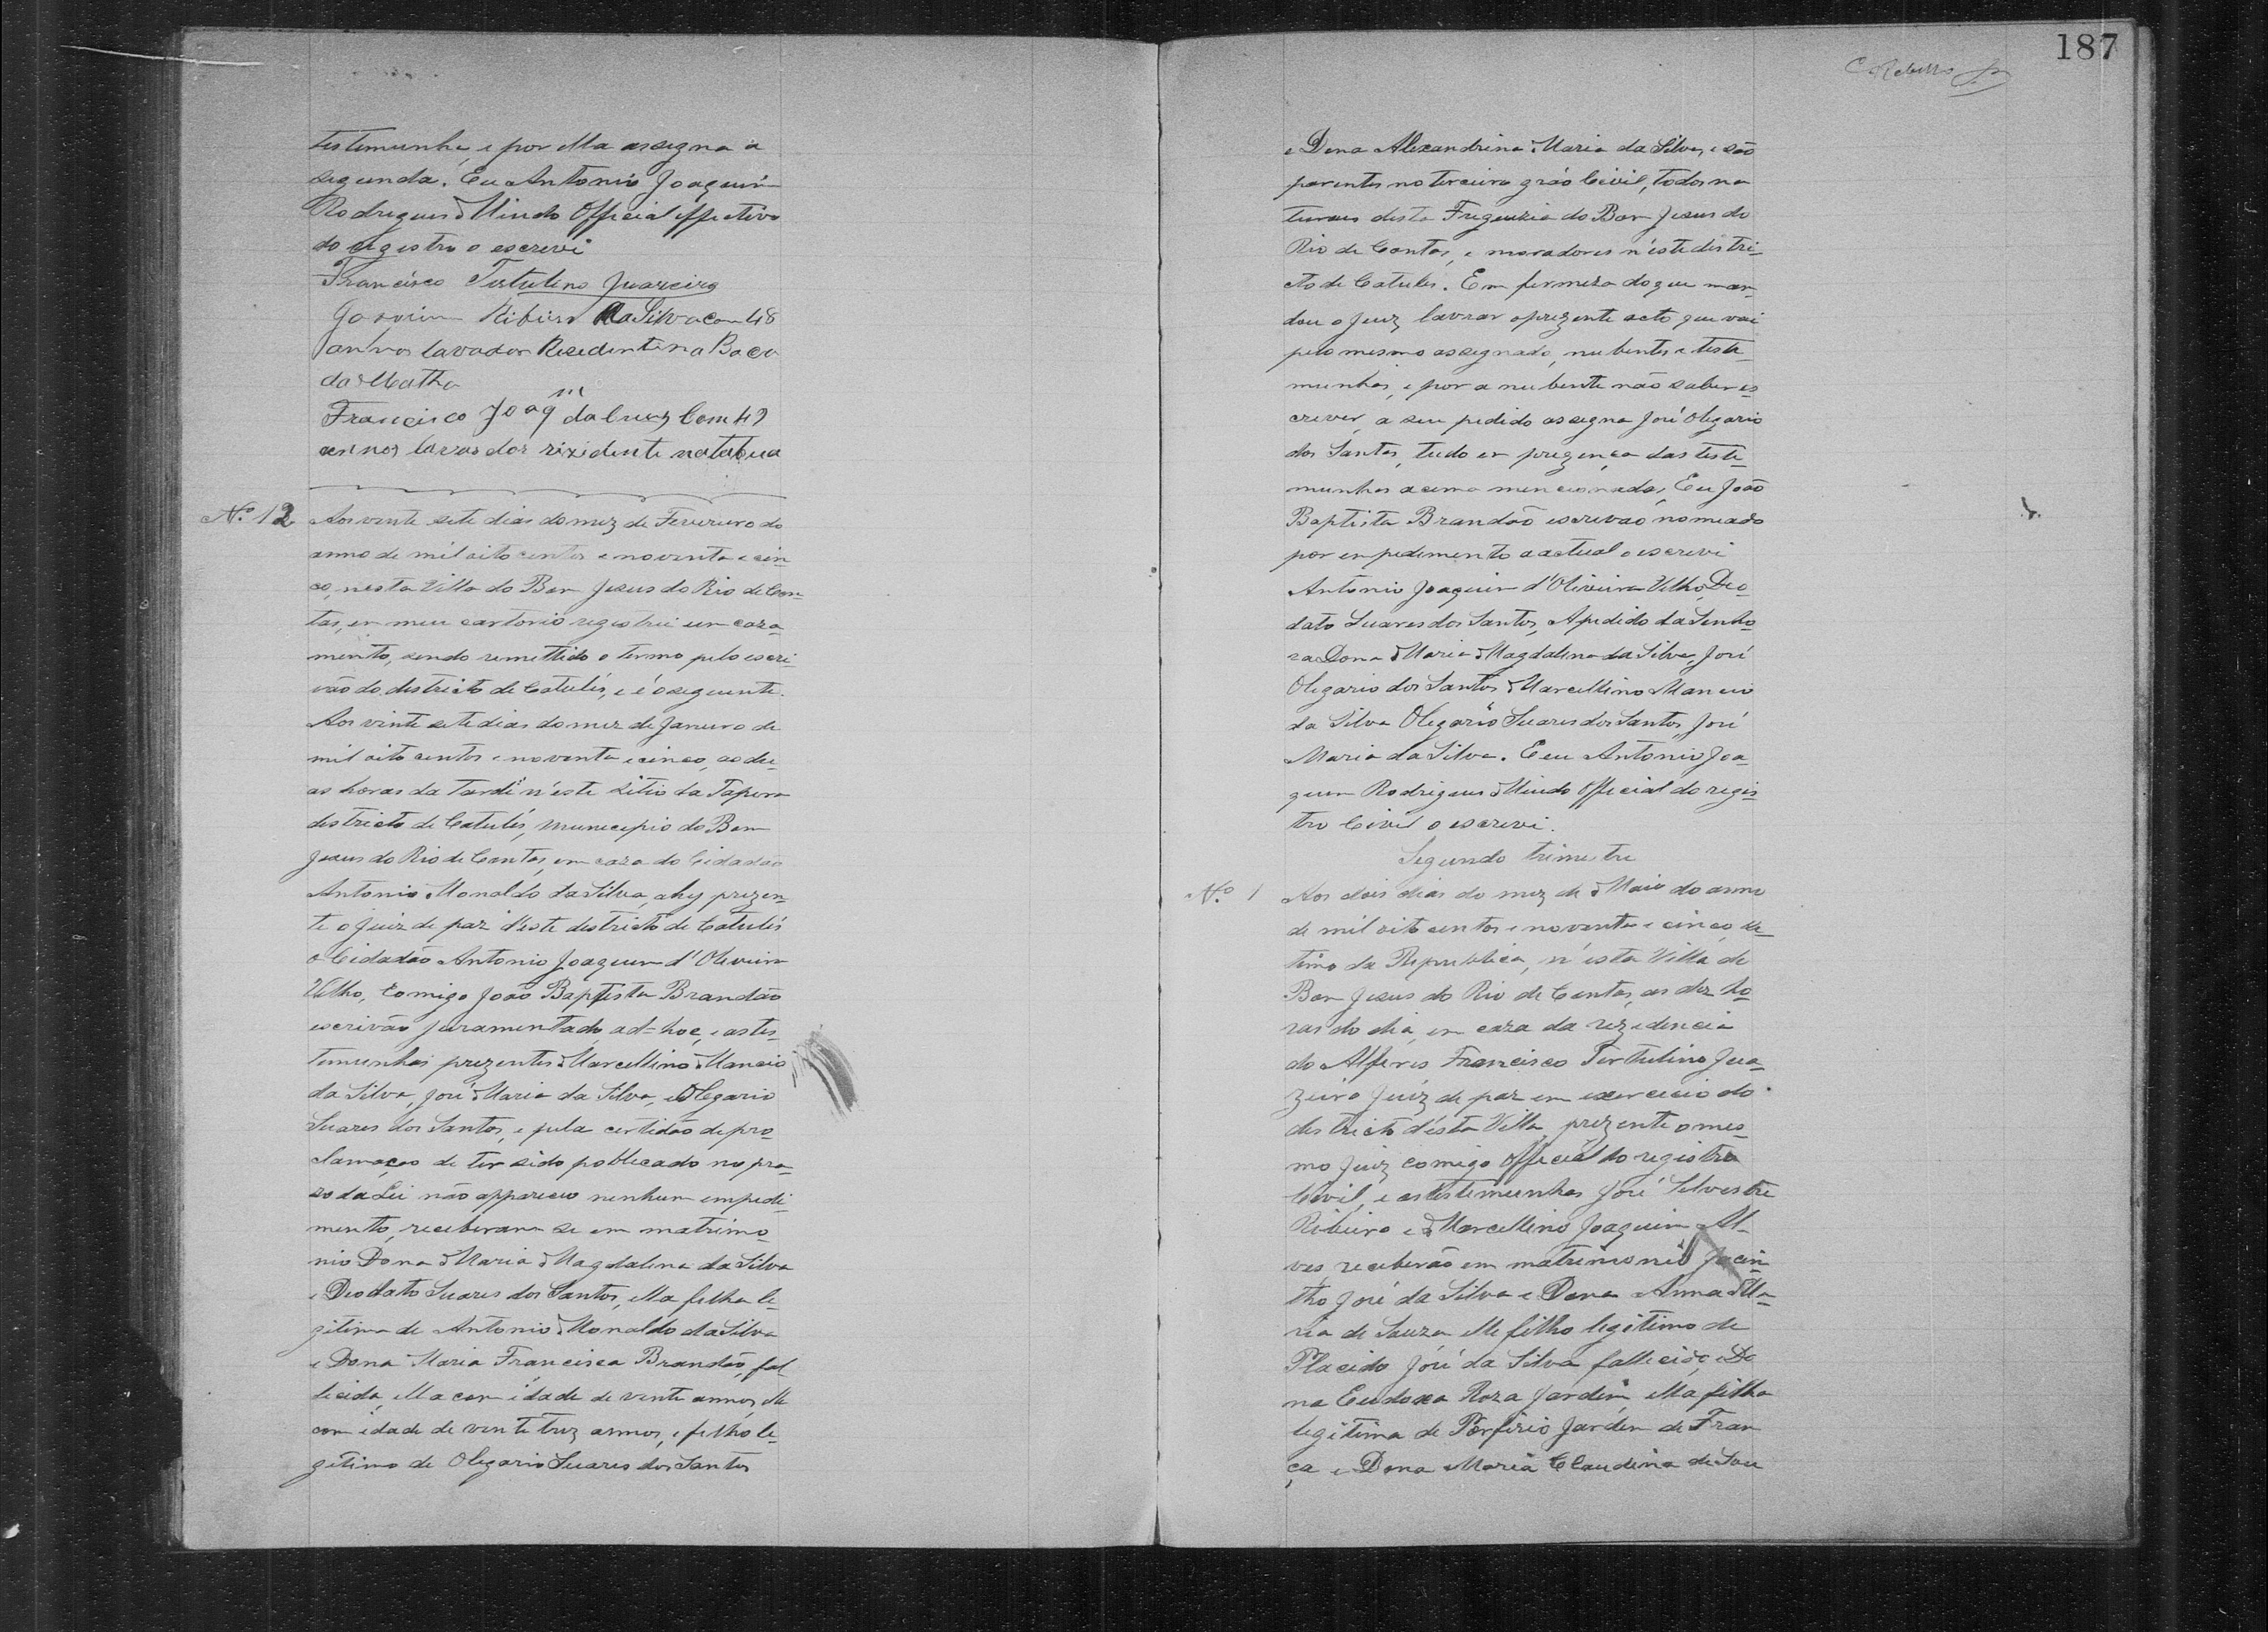 testemunha, e por ella assegna a
segunda. Eu Antonio Joaquim
Rodrigues Mindo Official effectivo
do registro o escrevi
Francisco Tertulino Juazeiro
Joaquim Ribeiro da Silva com 48
annos lavador Residente na Boca
da Matha
Francisco Joaqm da Cruz Com 49
annos lavrador rizidente natabua
No. 12
Aos vinte sete dias do mez de Fevereiro do
anno de mil oito centos e noventa e cin-
co, nesta Villa do Bom Jesus do Rio de Con-
tas, em meu cartorio registrei um caza-
mento, sendo remettido o termo pelo escri-
vão do districto de Catulés, e é o seguente.
Aos vinte sete dias do mez de Janeiro de
mil oito centos e noventa e cinco, as du-
as horas da tarde n'este sitio da Tapera
destricto de Catulés, municipio do Bom
Jesus do Rio de Contas, em caza do Cidadão
Antonio Monaldo da Silva, ahy prezen-
te o Juiz de paz d'este destricto de Catulés
o Cidadão Antonio Joaquim d'Oliveira
Velho, Comigo João Baptista Brandão
escrivão juramentado, ad=hoc, e as tes-
temunhas prezentes Marcellino Mancio
da Silva, José Maria da Silva, e Olegario
Suares dos Santos, e pela certidão de pro-
clamação de ter sido poblicado no pra-
zo da Lei não appareceu nenhum empedi-
mento, receberam se em matrimo-
nio Dona Maria Magdalena da Silva
e Deodato Suares dos Santos, ella filha le-
gitima de Antonio Monaldo da Silva
e Dona Maria Francisca Brandão, fal-
lecida, ella com idade de vente annos, elle
com idade de vente trez annos, e filho le-
gitimo de Olegario Suares dos Santos
187
e Dona Alexandrina Maria da Silva, e são
parentes no terceiro gráo Civil, todos na
turaes desta Freguezia do Bom Jesus do
Rio de Contas, e moradores n'este distri-
cto de Catulés. Em firmeza do que man-
dou o Juiz lavrar o prezente acto que vai
pelo mesmo assegnado, nubentes e teste-
munhas, e por a nubente não saber es
crever, a seu pedido assegna José Olegario
dos Santos, tudo em prezença das teste-
munhas acima mencionadas, Eu João
Baptista Brandão escrevão nomeado
por empedimento a actual o escrevi
Antonio Joaquim d'Oliveira Velho, Deo-
dato Suares dos Santos, Apedido da Senho-
ra Dona Maria Magdalena da Silva, José
Olegario dos Santos Marcellino Mancio
da Silva Olegario Suares dos Santos, José
Maria da Silva. E eu Antonio Joa-
quim Rodrigues Mindo Official do regis-
tro Civil o escrevi.
Segundo trimestre
No. 1
Aos dois dias do mez de Maio do anno
de mil oito centos e noventa e cinco, se-
timo da Republica, n'esta Villa de
Bom Jesus do Rio de Contas, as dez ho-
ras do dia, em caza da rezedencia
do Alferes Francisco Tertulino Jua-
zeiro Juiz de paz em exercicio do
destricto désta Villa, prezente o mes-
mo Juiz comigo Official do registro
Civil, e as testemunhas José Silvestre
Ribeiro e Marcellino Joaquim Al-
ves, receberão em matrimonio Jacin-
tho José da Silva e Dona Anna Ma-
ria de Souza elle filho legitimo de
Placido José da Silva fallecido, e Do
na Eudoxa Roza Jardim, ella filha
legitima de Porfirio Jardim de Fran
ça e Dona Maria Claudina de Sou